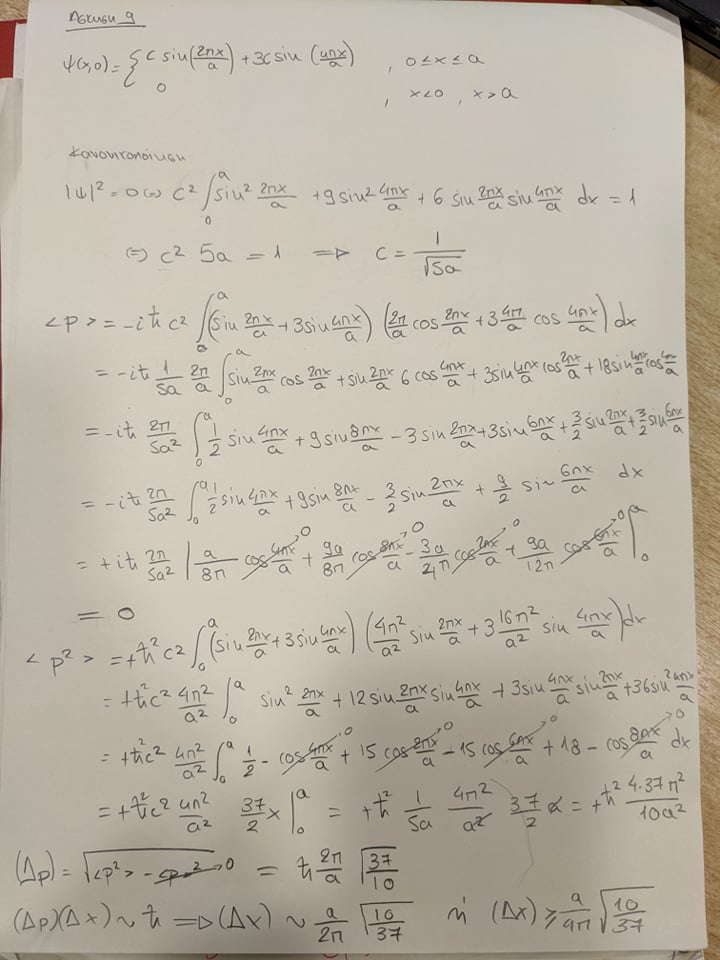 Άσκηση 9
ψ(x,0) = { c sin(2πx/a) + 3c sin(4πx/a) , 0≤x≤a
0 , x<0 , x>a
Κανονικοποίηση
|ψ|² = 0 (=) c² ∫₀ᵃ sin² 2πx/a + 9 sin² 4πx/a + 6 sin 2πx/a sin 4πx/a dx = 1
(=) c² 5a = 1 => c = 1/√5a
<p> = -iħ c² ∫₀ᵃ (sin 2πx/a + 3 sin 4πx/a) (2π/a cos 2πx/a + 3 4π/a cos 4πx/a) dx
= -iħ 1/5a 2π/a ∫₀ᵃ sin 2πx/a cos 2πx/a + sin 2πx/a 6 cos 4πx/a + 3 sin 4πx/a cos 2πx/a + 18 sin 4πx/a cos 4πx/a
= -iħ 2π/5a² ∫₀ᵃ 1/2 sin 4πx/a + 9 sin 8πx/a - 3 sin 2πx/a + 3 sin 6πx/a + 3/2 sin 2πx/a + 3/2 sin 6πx/a
= -iħ 2π/5a² ∫₀ᵃ 1/2 sin 4πx/a + 9 sin 8πx/a - 3/2 sin 2πx/a + 9/2 sin 6πx/a dx
= +iħ 2π/5a² | a/8π cos 4πx/a → 0 + 9a/8π cos 8πx/a → 0 - 3a/4π cos 2πx/a → 0 + 9a/12π cos 6πx/a → 0 |₀ᵃ
= 0
<p²> = +ħ² c² ∫₀ᵃ (sin 2πx/a + 3 sin 4πx/a) (4π²/a² sin 2πx/a + 3 16π²/a² sin 4πx/a) dx
= +ħc² 4π²/a² ∫₀ᵃ sin² 2πx/a + 12 sin 2πx/a sin 4πx/a + 3 sin 4πx/a sin 2πx/a + 36 sin² 4πx/a
= +ħ²c² 4π²/a² ∫₀ᵃ 1/2 - cos 4πx/a → 0 + 15 cos 2πx/a → 0 - 15 cos 6πx/a → 0 + 18 - cos 8πx/a → 0 dx
= +ħ²c² 4π²/a² 37/2 x |₀ᵃ = +ħ² 1/5a 4π²/a² 37/2 a = +ħ² 4·37π²/10a²
(Δp) = √<p²> - <p>² → 0 = ħ 2π/a √37/10
(Δp)(Δx) ~ ħ => (Δx) ~ a/2π √10/37 ή (Δx) ≥ a/4π √10/37